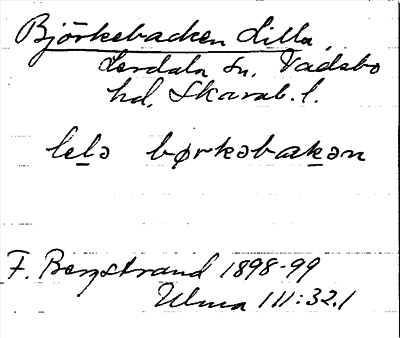 Björkebacken Lilla,
Lerdala sn. Vadsbo
hd, Skarab. l.
lelə børkəbakən
F. Bergstrand 1898-99
Ulma 111:32.1